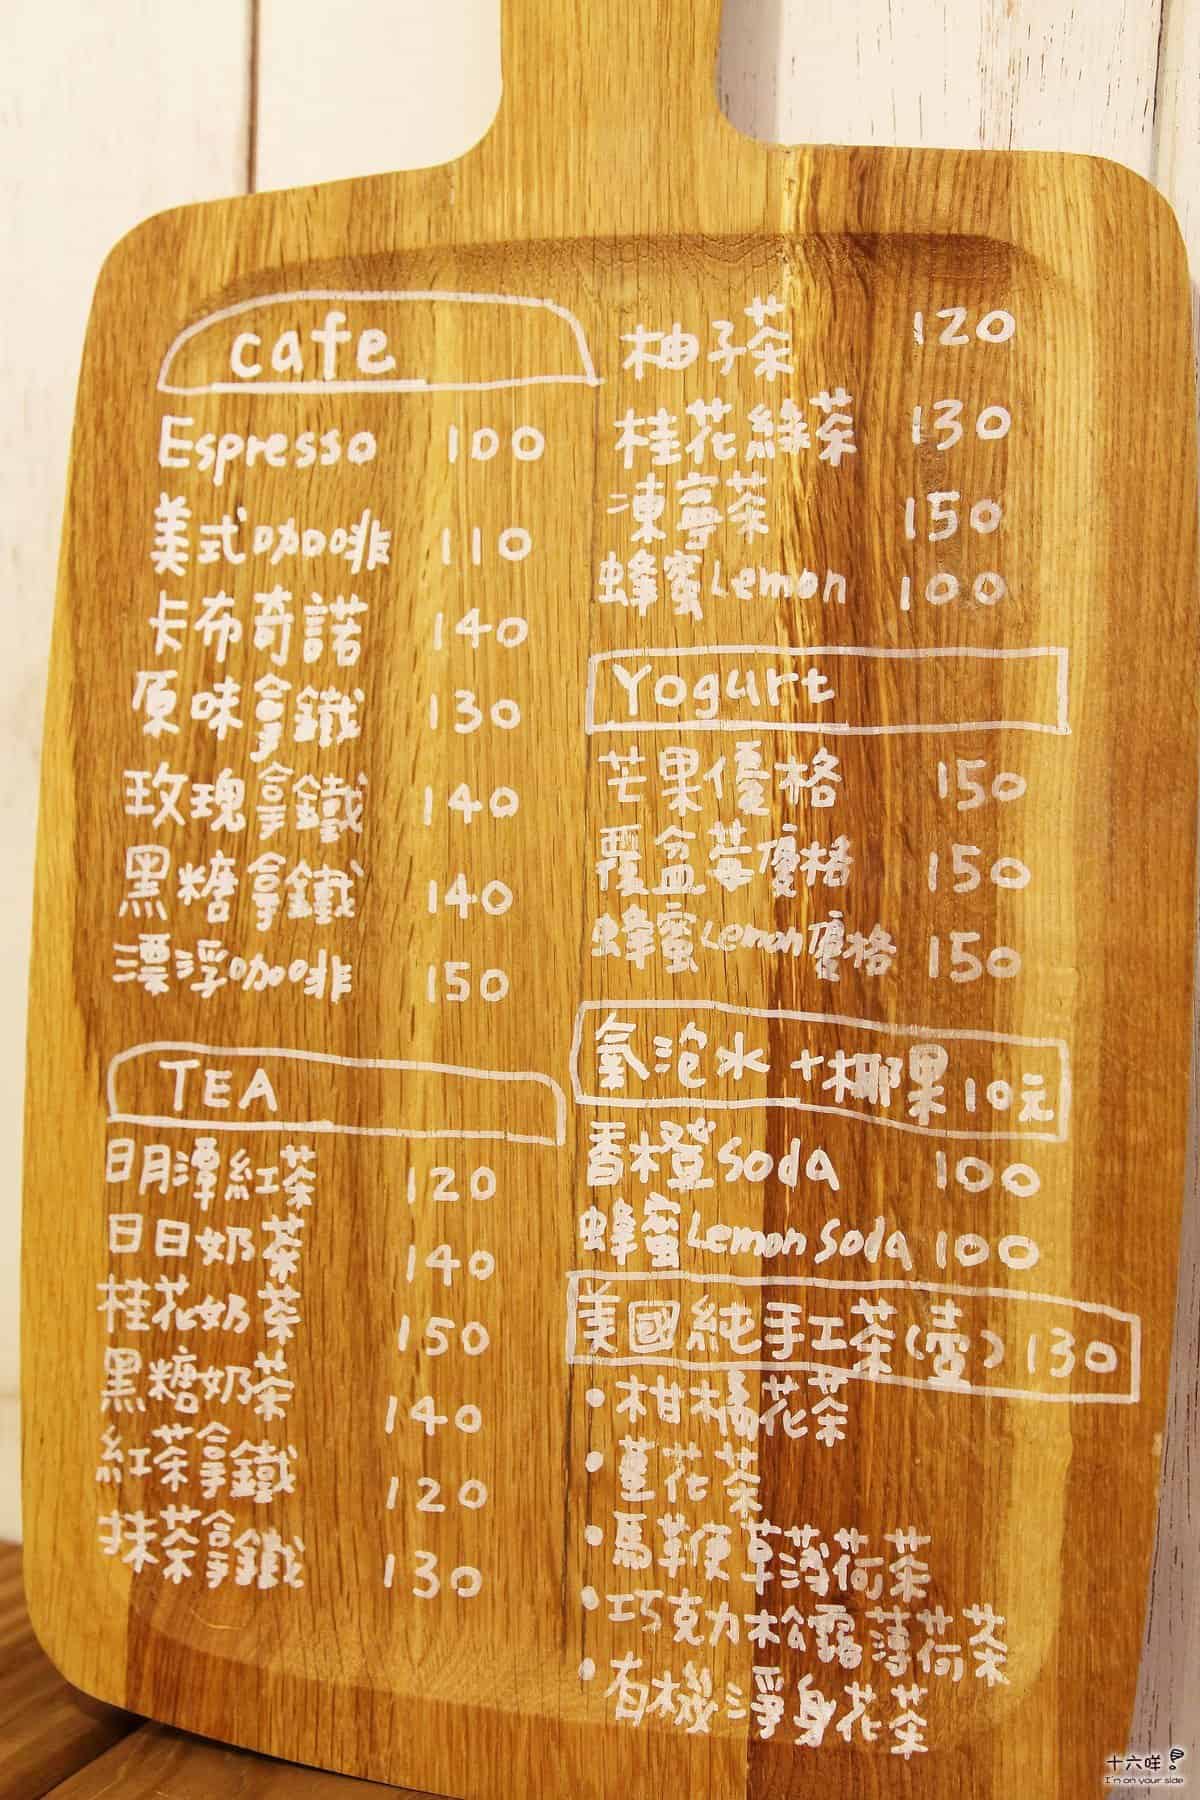 cafe
Espresso 100
美式咖啡 110
卡布奇諾 140
原味拿鐵 130
玫瑰拿鐵 140
黑糖拿鐵 140
漂浮咖啡 150
TEA
日月潭紅茶 120
日日奶茶 140
桂花奶茶 150
黑糖奶茶 140
紅茶拿鐵 120
抹茶拿鐵 130
柚子茶 120
桂花綠茶 130
凍寧茶 150
蜂蜜Lemon 100
Yogurt
芒果優格 150
覆盆莓優格 150
蜂蜜Lemon優格 150
氣泡水 +椰果10元
香橙Soda 100
蜂蜜Lemon Soda 100
美國純手工茶(壺) 130
·柑橘花茶
·菫花茶
·馬鞭草薄荷茶
·巧克力松露薄荷茶
·有機淨身花茶
十六咩
I'm on your side